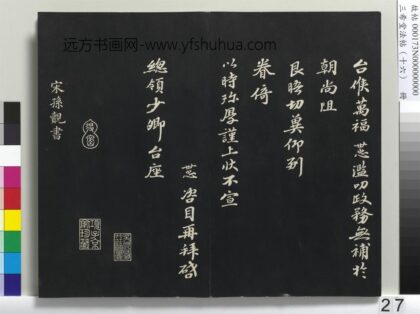 远方书画网-www.yfshuhua.com
故帖 000173N00000000
三希堂法帖(十六) 冊
台候萬福 㦤濫叨政務無補於
朝尚阻
良晤切冀仰副
眷倚
以時珎厚謹上狀不宣
咨目再拜啓
總領少卿台座
宋孫覿書
27